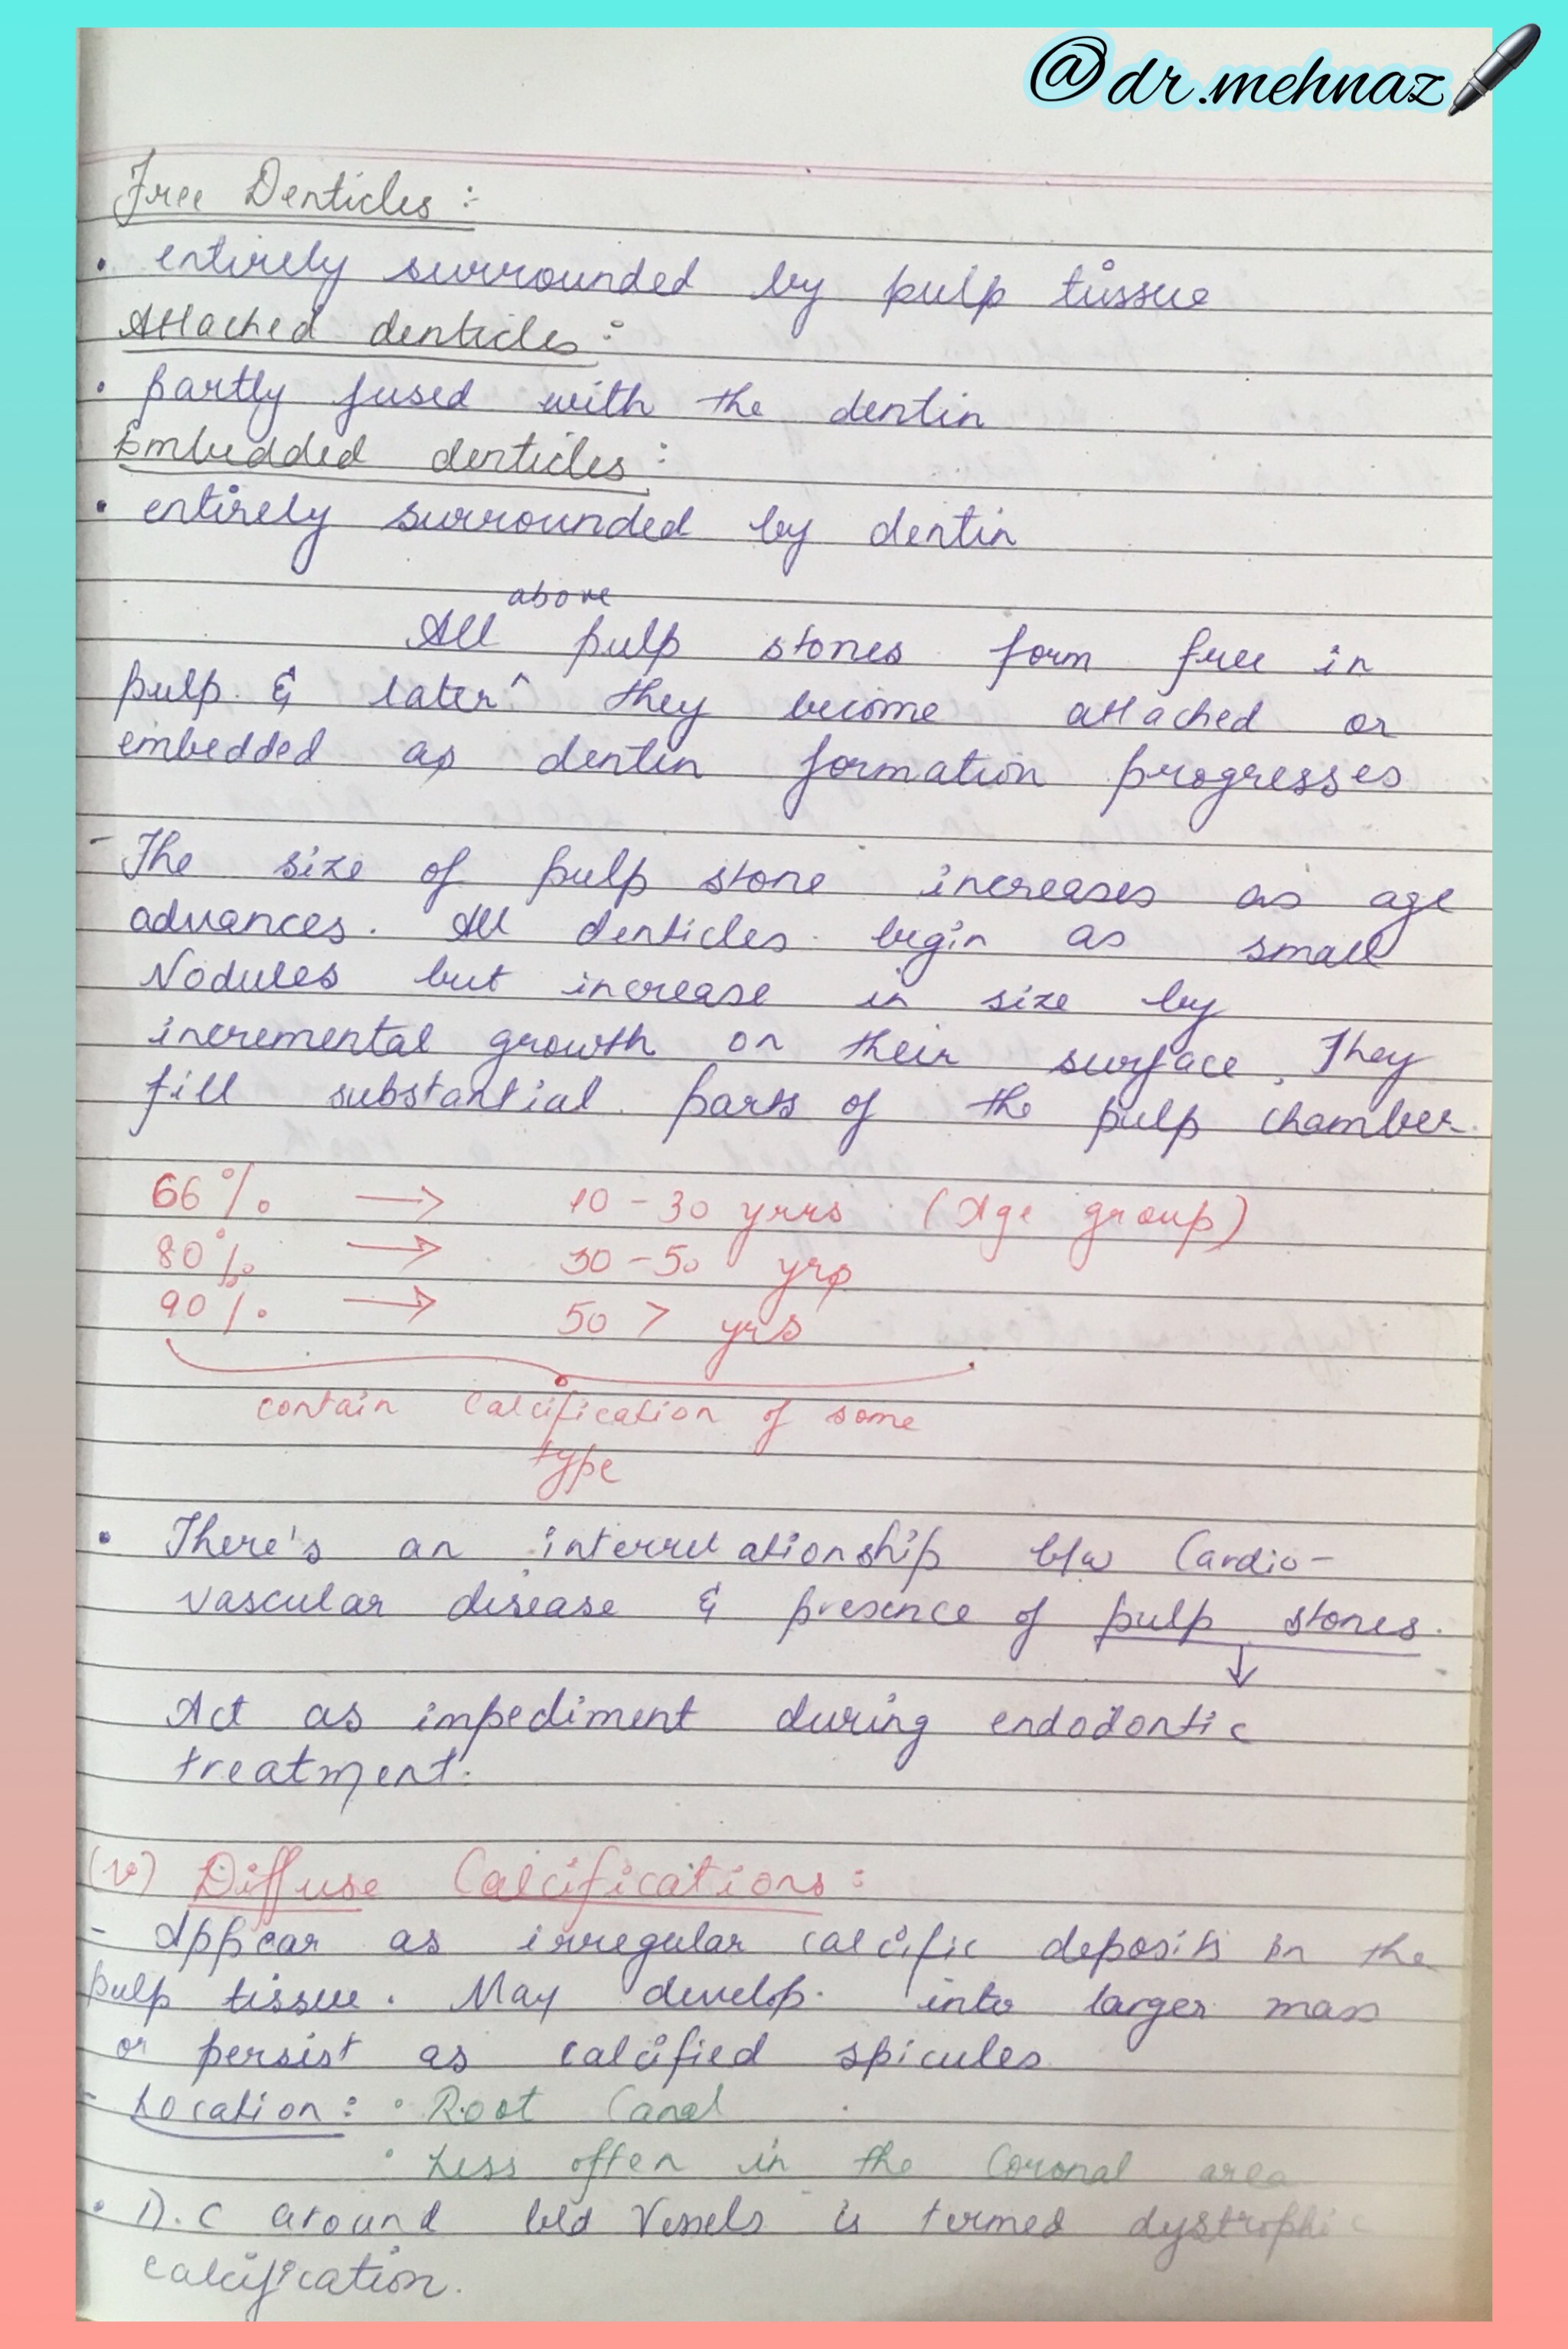 @dr.mehnaz
Free Denticles :-
• entirely surrounded by pulp tissue
Attached denticles :
• partly fused with the dentin
Embedded denticles :
• entirely surrounded by dentin
above
All pulp stones form free in
pulp & later ^ they become attached or
embedded as dentin formation progresses
- The size of pulp stone increases as age
advances. All denticles begin as small
Nodules but increase in size by
incremental growth on their surface. They
fill substantial parts of the pulp chamber.
66% → 10-30 yrrs (Age group)
80% → 30-50 yrs
90% → 50 > yrs
contain calcification of some
type
• There's an interrelationship b/w Cardio-
vascular disease & presence of pulp stones.
↓
Act as impediment during endodontic
treatment.
(v) Diffuse Calcifications :
- Appear as irregular calcific deposits in the
pulp tissue. May develop into larger mass
or persist as calcified spicules
- Location : • Root Canal
• Less often in the Coronal area
• D.C around bld Vessels is termed dystrophic
calcification.